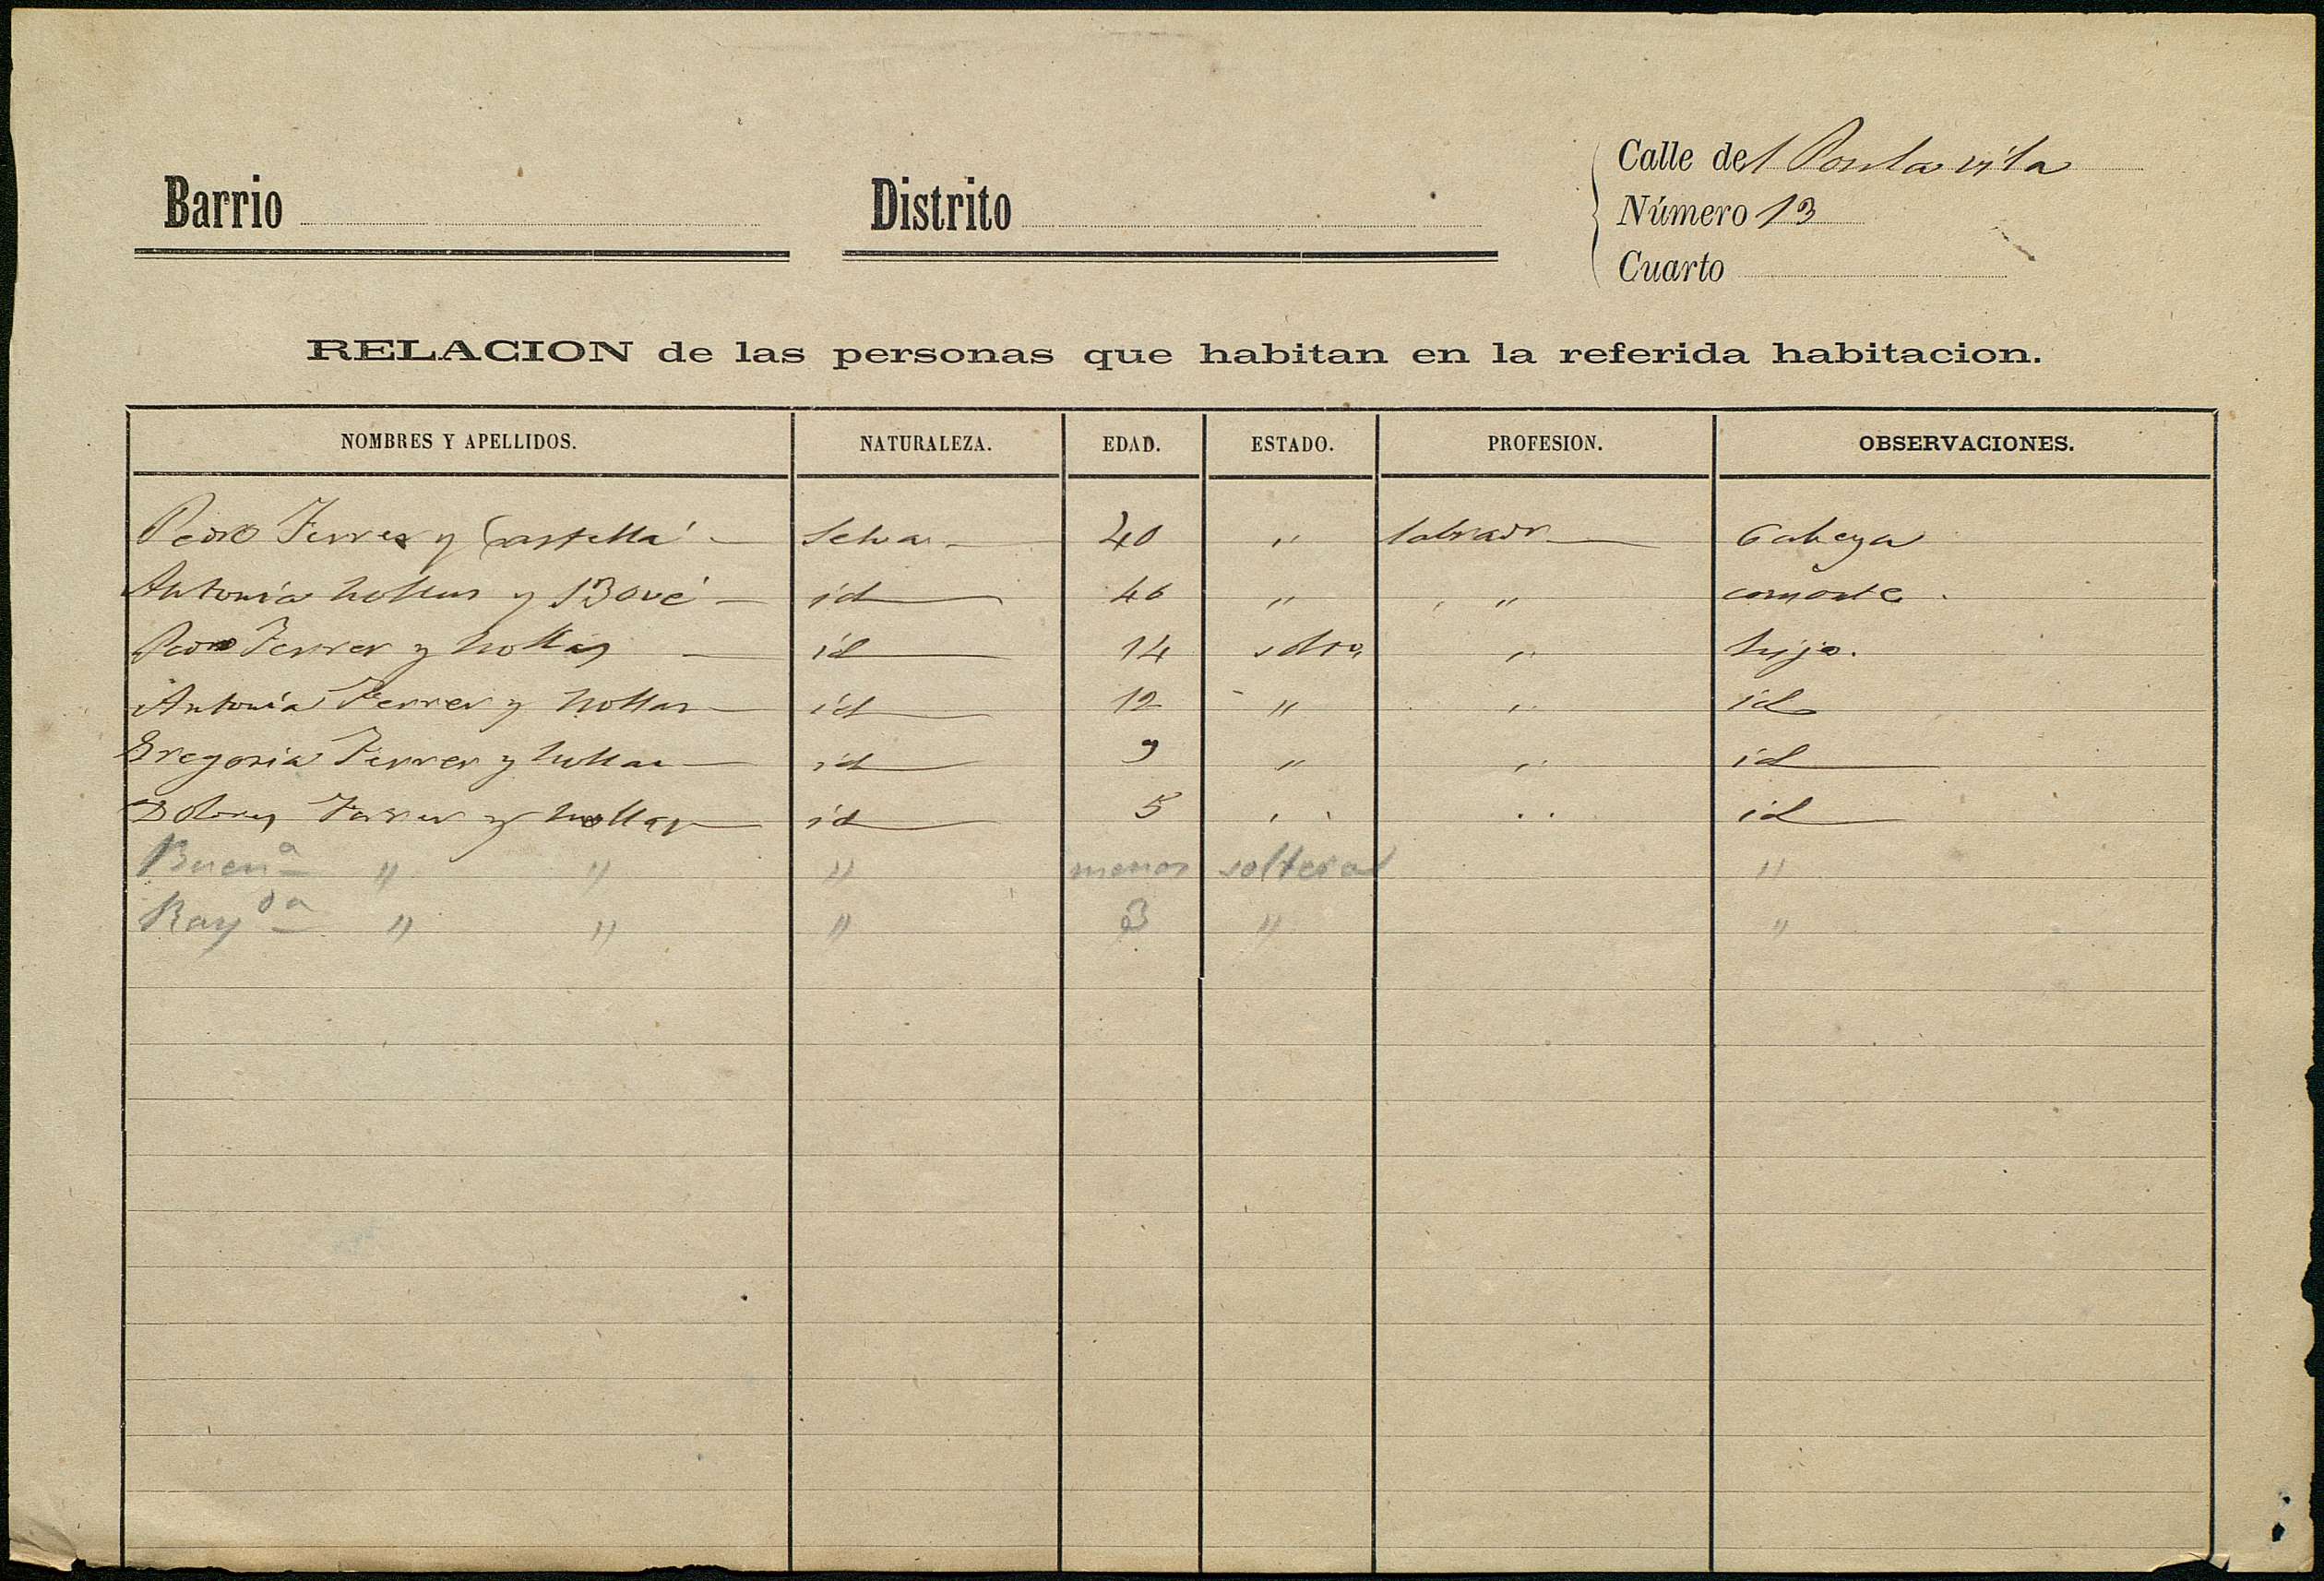 Barrio
Distrito
Calle del Pontavila
Número 13
Cuarto
RELACION de las personas que habitan en la referida habitacion.
NOMBRES Y APELLIDOS. NATURALEZA. EDAD. ESTADO. PROFESION. OBSERVACIONES.
Pedro Ferrer y Castellá Selva 40 " labrador Cabeza
Antonia y Bové id 46 " " consorte
Pedro Ferrer y id 14 soltro " hijo.
Antonia Ferrer y id 12 " " id
Gregoria Ferrer y id 9 " " id
Dolores Ferrer y id 5 " " id
Buenª " " " menor solteral "
Rayda " " " 3 " "